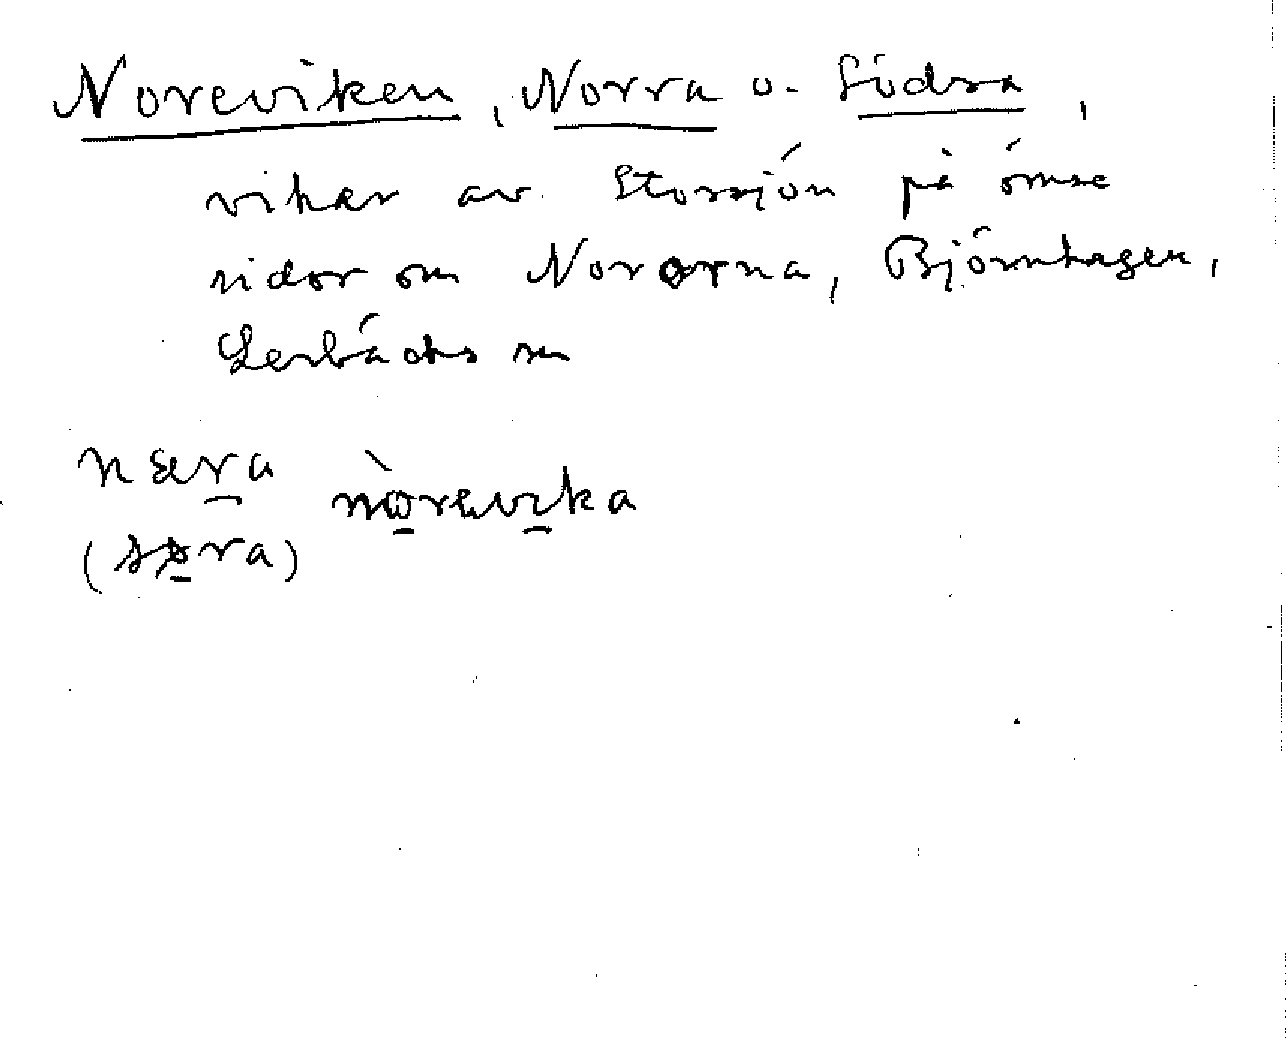 Noreviken, Norra o. Södra,
vikar av Storsjön på ömse
sidor om Nororna, Björnhagen,
Lerbäcks sn
næra nòrevika
(søra)